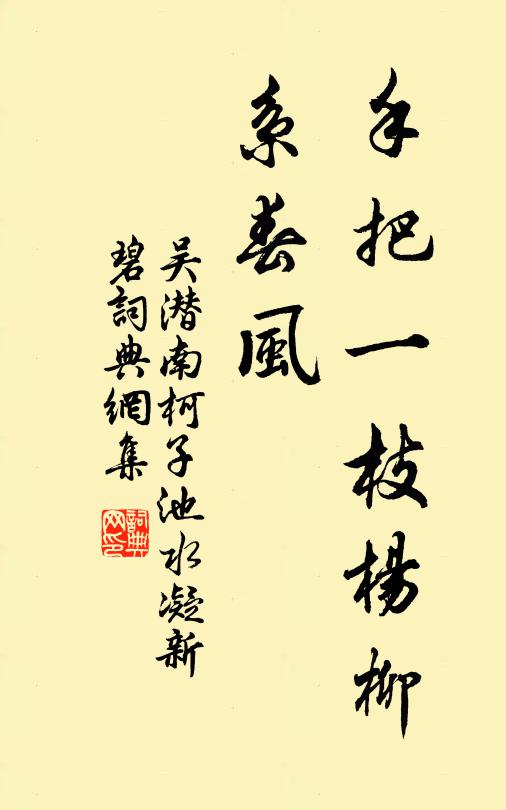 手把一枝楊柳
系春風
吴潛南柯子池水凝新
碧詞典網集
詞典
网印